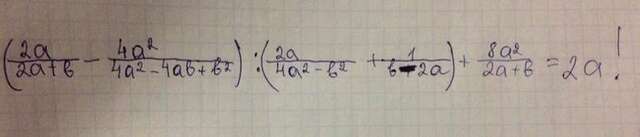 (2a/(2a+b) - 4a²/(4a²-4ab+b²)) : (2a/(4a²-b²) + 1/(b-2a)) + 8a²/(2a+b) = 2a!